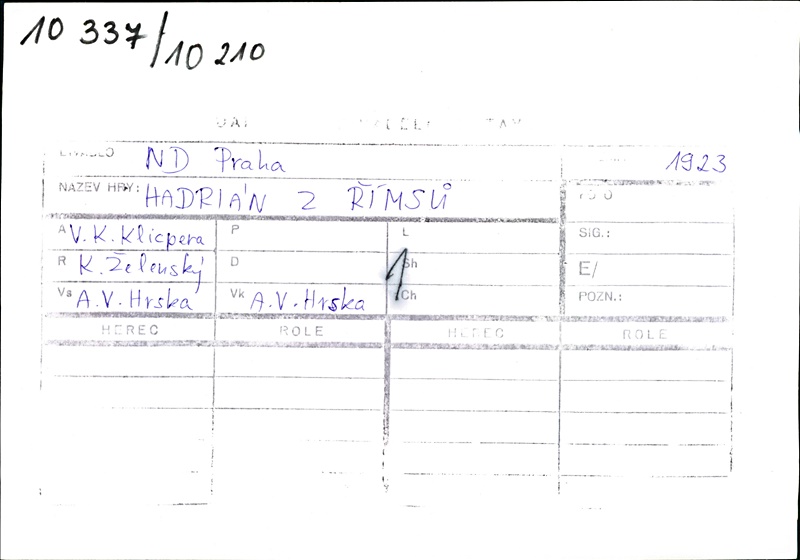 10 337/10 210
DIVADLO ND Praha 1923
NÁZEV HRY: HADRIÁN Z ŘÍMSŮ
A V. K. Klicpera P L SIG.:
R K. Želenský D Sh E/
Vs A. V. Hrská Vk A. V. Hrska Ch POZN.:
HEREC ROLE HEREC ROLE